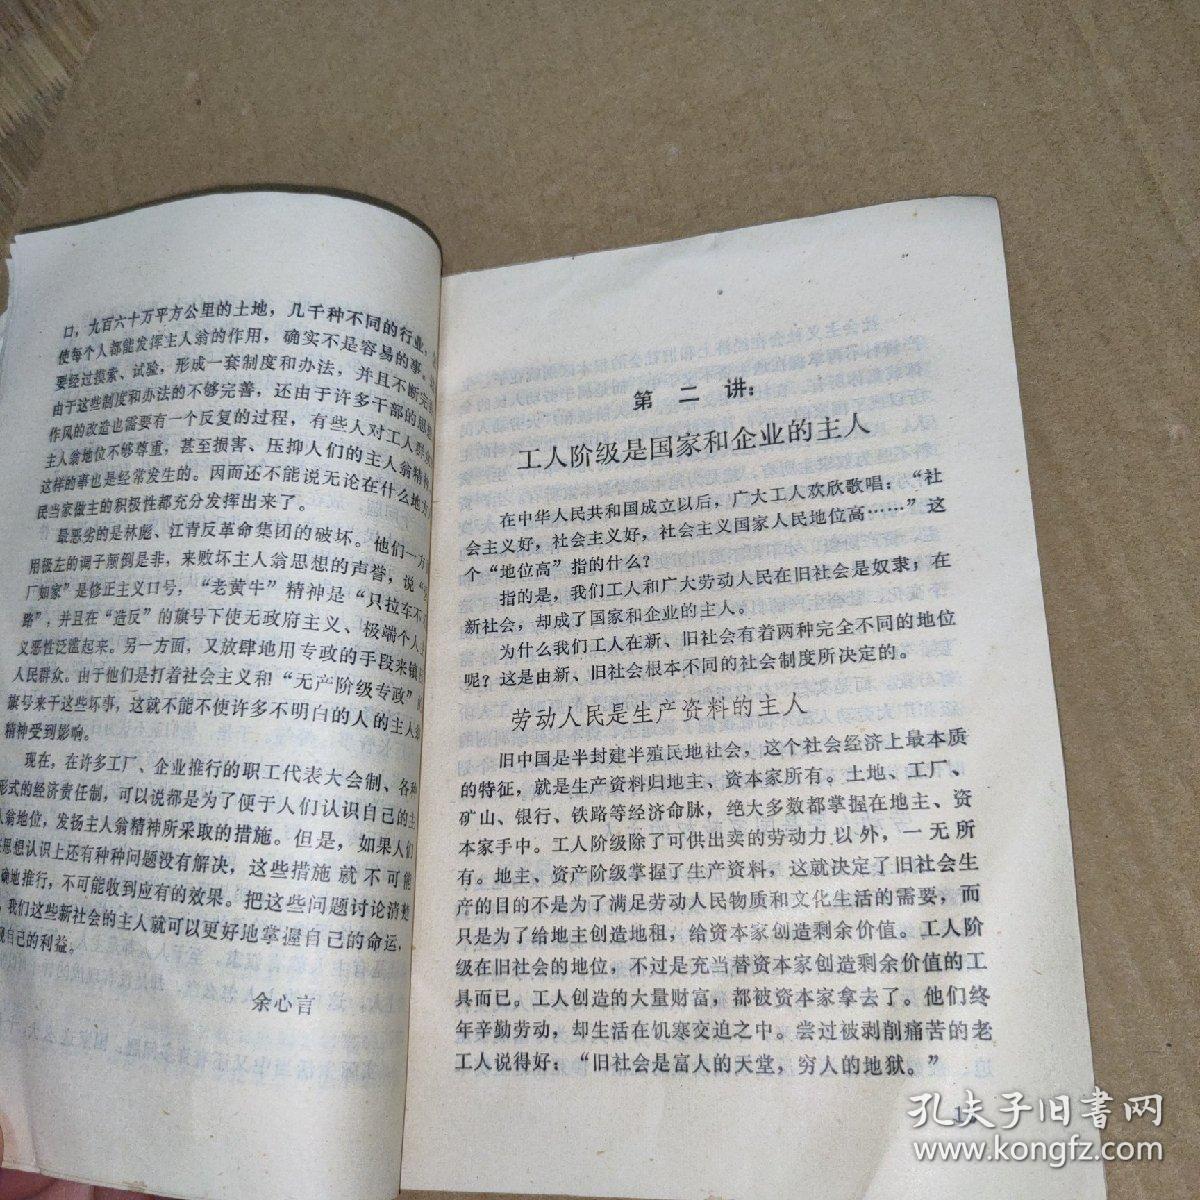 口，九百六十万平方公里的土地，几千种不同的行业，
使每个人都能发挥主人翁的作用，确实不是容易的事。
要经过摸索、试验，形成一套制度和办法，并且不断完
由于这些制度和办法的不够完善，还由于许多干部的思想
作风的改造也需要有一个反复的过程，有些人对工人群众
主人翁地位不够尊重，甚至损害、压抑人们的主人翁精神
这样的事也是经常发生的。因而还不能说无论在什么地方
民当家做主的积极性都充分发挥出来了。
最恶劣的是林彪、江青反革命集团的破坏。他们一方
用极左的调子颠倒是非，来败坏主人翁思想的声誉，说“
厂如家”是修正主义口号，“老黄牛”精神是“只拉车不
路”，并且在“造反”的旗号下使无政府主义、极端个人
义恶性泛滥起来。另一方面，又放肆地用专政的手段来镇
人民群众。由于他们是打着社会主义和“无产阶级专政”
旗号来干这些坏事，这就不能不使许多不明白的人的主人
精神受到影响。
现在，在许多工厂、企业推行的职工代表大会制、各种
形式的经济责任制，可以说都是为了便于人们认识自己的主
人翁地位，发扬主人翁精神所采取的措施。但是，如果人们
思想认识上还有种种问题没有解决，这些措施就不可能
确地推行，不可能收到应有的效果。把这些问题讨论清楚
，我们这些新社会的主人就可以更好地掌握自己的命运，
现自己的利益。
余心言
第二讲：
工人阶级是国家和企业的主人
在中华人民共和国成立以后，广大工人欢欣歌唱：“社
会主义好，社会主义好，社会主义国家人民地位高……”这
个“地位高”指的什么？
指的是，我们工人和广大劳动人民在旧社会是奴隶；在
新社会，却成了国家和企业的主人。
为什么我们工人在新、旧社会有着两种完全不同的地位
呢？这是由新、旧社会根本不同的社会制度所决定的。
劳动人民是生产资料的主人
旧中国是半封建半殖民地社会，这个社会经济上最本质
的特征，就是生产资料归地主、资本家所有。土地、工厂、
矿山、银行、铁路等经济命脉，绝大多数都掌握在地主、资
本家手中。工人阶级除了可供出卖的劳动力以外，一无所
有。地主、资产阶级掌握了生产资料，这就决定了旧社会生
产的目的不是为了满足劳动人民物质和文化生活的需要，而
只是为了给地主创造地租，给资本家创造剩余价值。工人阶
级在旧社会的地位，不过是充当替资本家创造剩余价值的工
具而已。工人创造的大量财富，都被资本家拿去了。他们终
年辛勤劳动，却生活在饥寒交迫之中。尝过被剥削痛苦的老
工人说得好：“旧社会是富人的天堂，穷人的地狱。”
孔夫子旧书网
www.kongfz.com